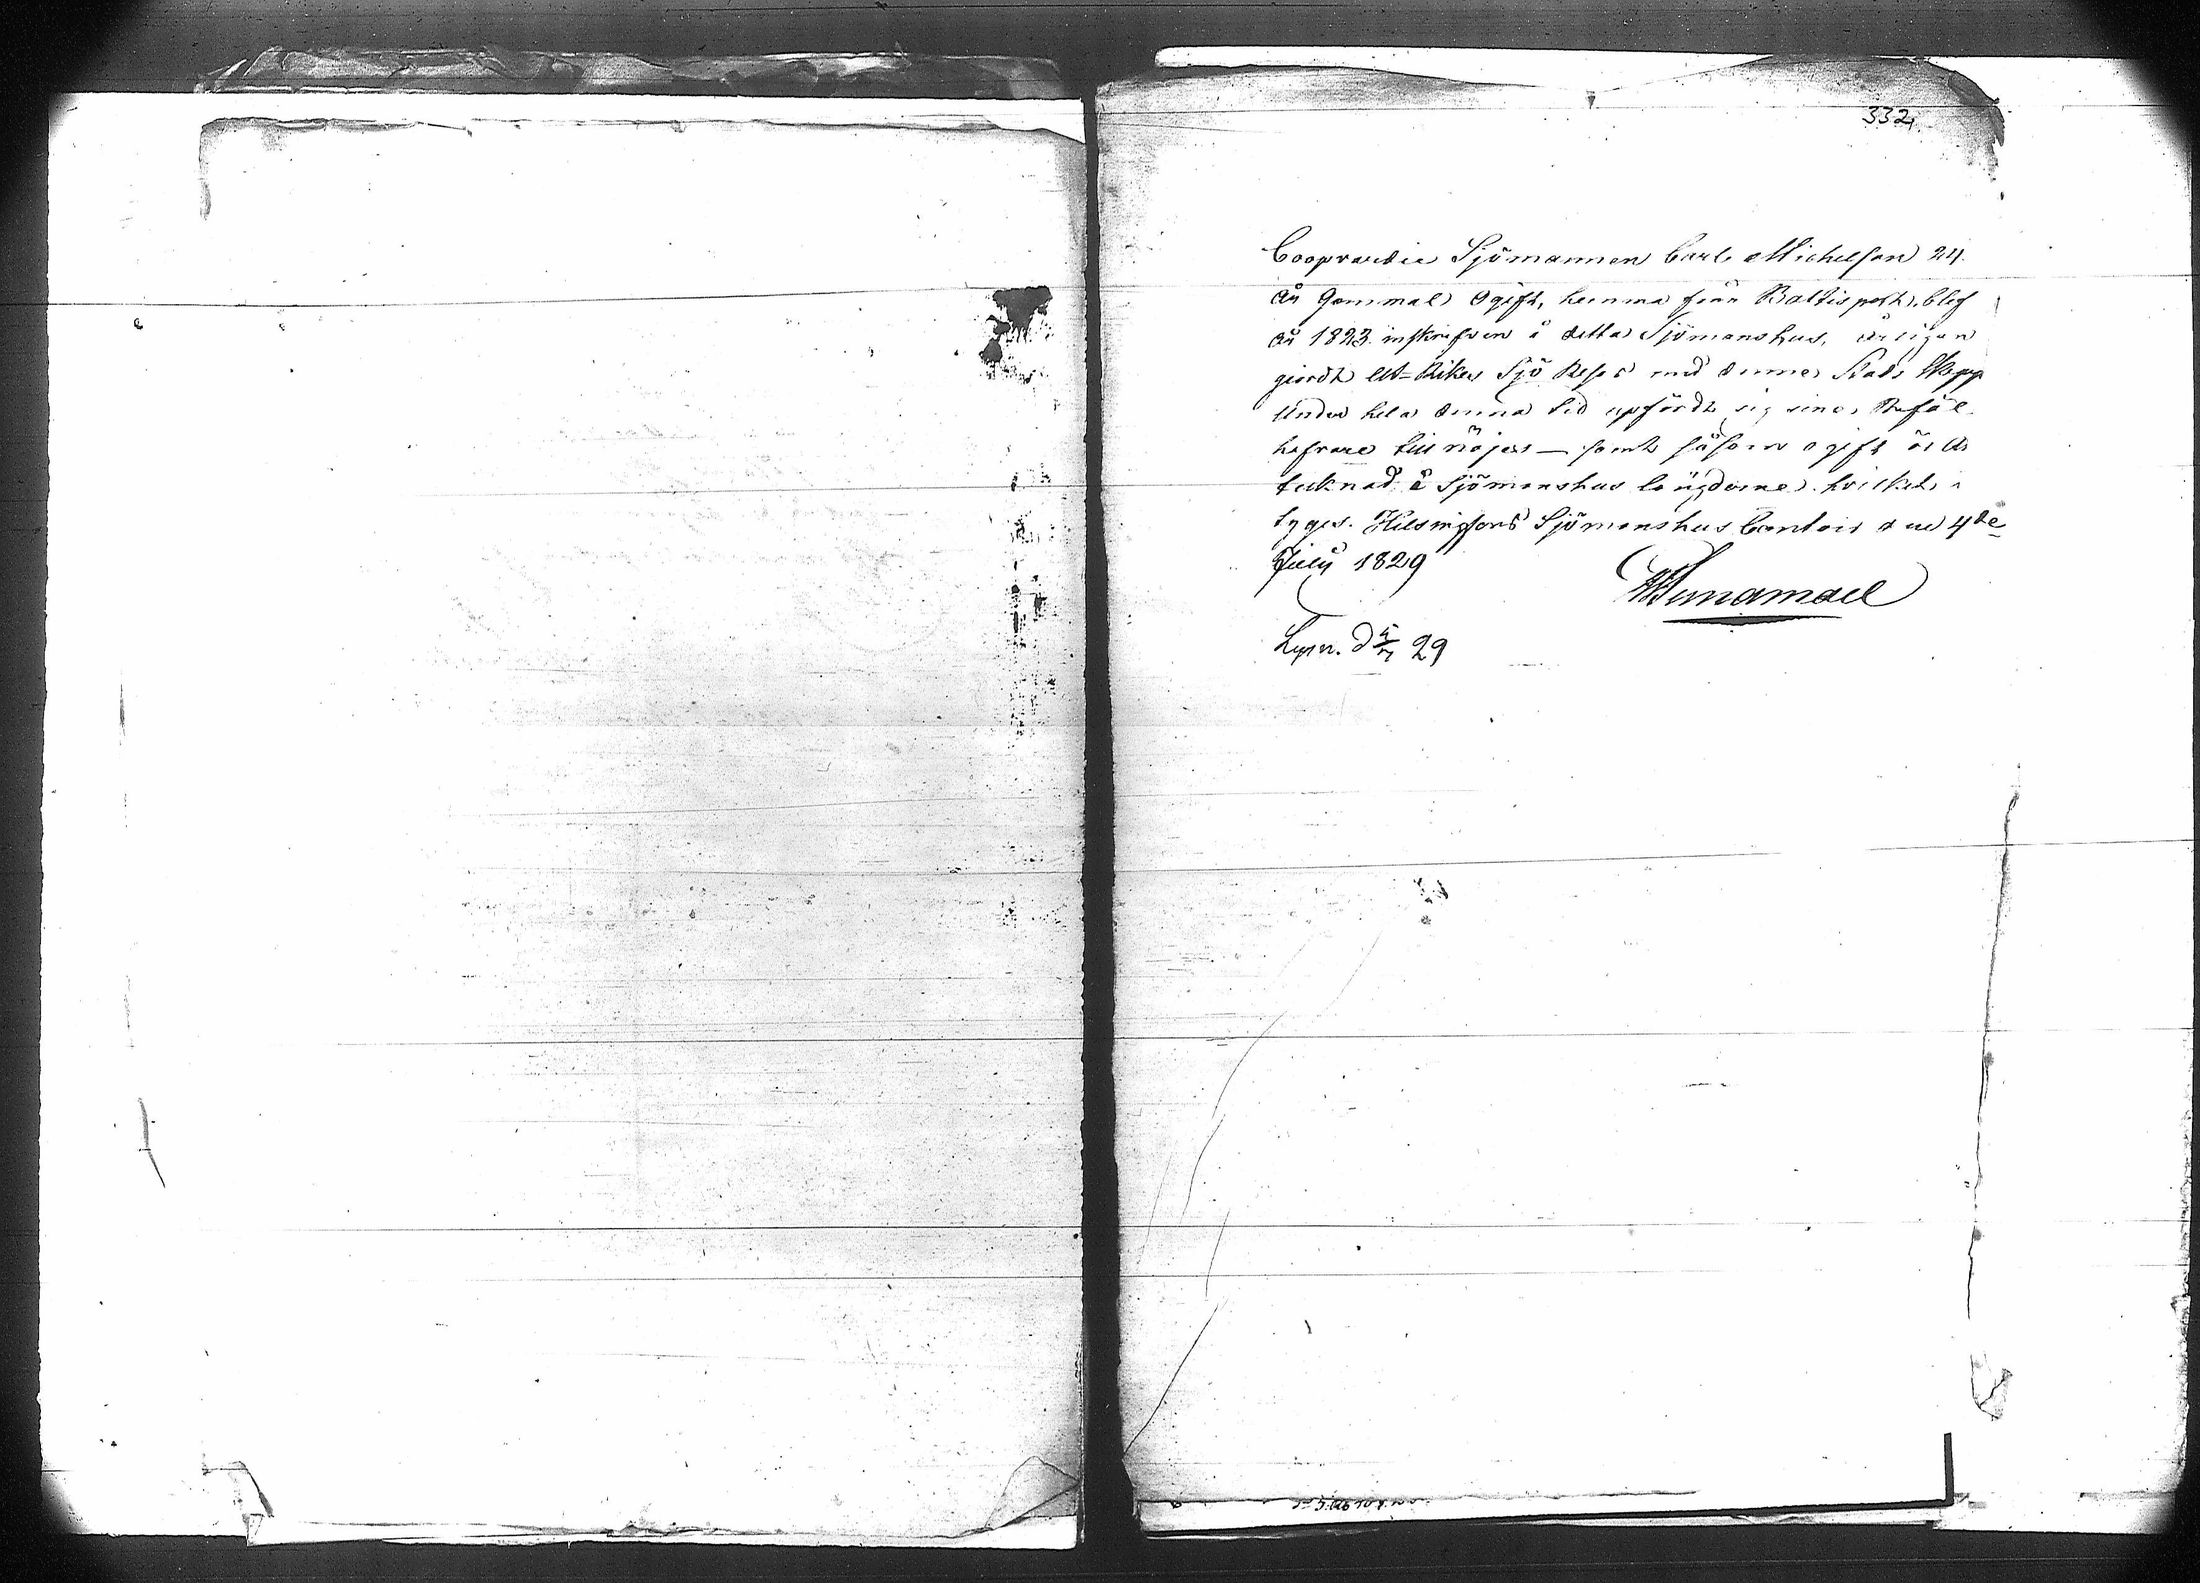 332.
Coopvardie Sjömannen Carl Michelson 24
år Gammal ogift, hemma från Baltisport, blef
år 1823 inskrifven å detta Sjömanshus, årligen
giordt Ut-Rikes Sjö Resor med denna Stads Skepp
Under hela denna tid upfördt sig sina Befäl
hafvare till nöjes — samt såsom ogift är An
tecknad å Sjömanshus längderne, hvilket
tyges. Helsingfors Sjömanshus Contoir den 4de
July 1829
Lyser. d 5/7 29